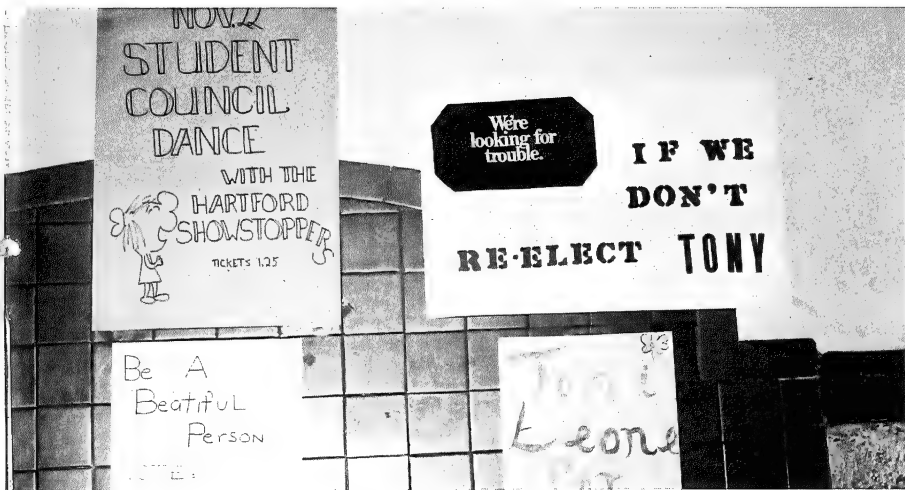 NOV. 22
STUDENT
COUNCIL
DANCE
WITH THE
HARTFORD
SHOWSTOPPERS
TICKETS 1.25
We're
looking for
trouble.
IF WE
DON'T
RE-ELECT TONY
Be A
BeatifuL
Person
Toni
Leone